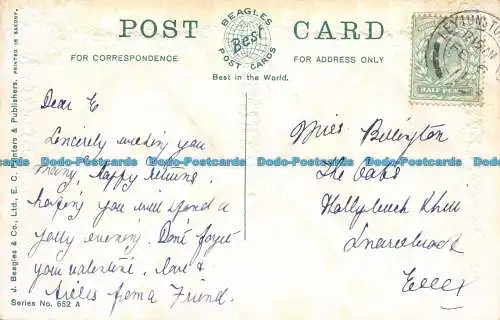 POST CARD
BEAGLES
Best
POST CARDS
Best in the World.
FOR CORRESPONDENCE
FOR ADDRESS ONLY
HALF PENNY
LEYTONSTO
Dear E
Sincerely wishing you
many happy returns,
hoping you will spend a
jolly evening. Dont forget
your valentine. love &
kisses from a Friend.
Miss Billington
The Oaks
Hollybush Hill
Snaresbrook
Essex
J. Beagles & Co., Ltd., E. C. Printers & Publishers. PRINTED IN SAXONY.
Series No. 652 A
Dodo-Postcards Dodo-Postcards Dodo-Postcards Dodo-Postcards Dodo-Postcards
Dodo-Postcards Dodo-Postcards Dodo-Postcards Dodo-Postcards Dodo-Postcards